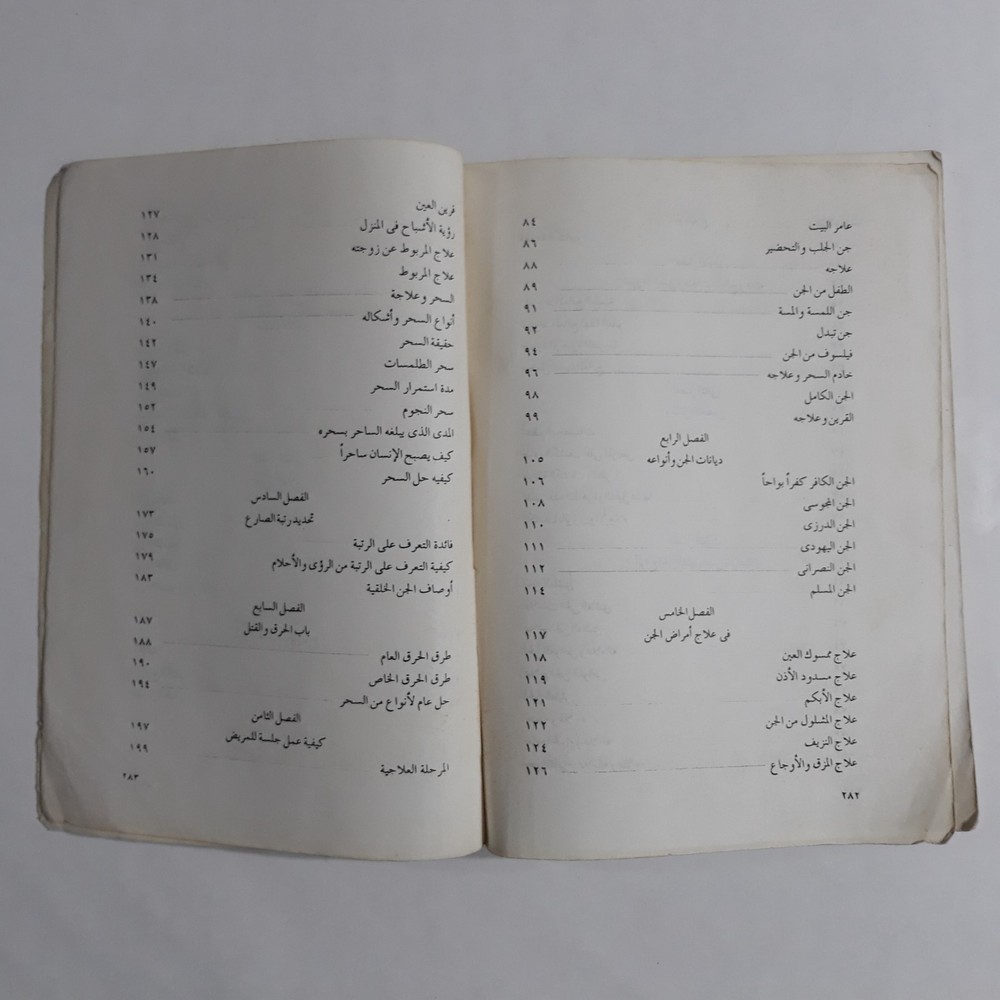 عامر البيت ٨٤
جن الجلب والتحضير ٨٦
علاجه ٨٨
الطفل من الجن ٨٩
جن اللمسة والمسة ٩١
جن تبدل ٩٢
فيلسوف من الجن ٩٤
خادم السحر وعلاجه ٩٦
الجن الكامل ٩٨
القرين وعلاجه ٩٩
الفصل الرابع
ديانات الجن وأنواعه ١٠٥
الجن الكافر كفراً بواحاً ١٠٦
الجن المجوسى ١٠٨
الجن الدرزى ١١٠
الجن اليهودى ١١١
الجن النصرانى ١١٢
الجن المسلم ١١٤
الفصل الخامس
فى علاج أمراض الجن ١١٧
علاج ممسوك العين ١١٨
علاج مسدود الأذن ١١٩
علاج الأبكم ١٢١
علاج المشلول من الجن ١٢٢
علاج النزيف ١٢٤
علاج المزق والأوجاع ١٢٦
٢٨٢
قرين العين ١٢٧
رؤية الأشباح فى المنزل ١٢٨
علاج المربوط عن زوجته ١٣١
علاج المربوط ١٣٤
السحر وعلاجة ١٣٨
أنواع السحر وأشكاله ١٤٠
حقيقة السحر ١٤٢
سحر الطلمسات ١٤٧
مدة استمرار السحر ١٤٩
سحر النجوم ١٥٢
المدى الذى يبلغه الساحر بسحره ١٥٤
كيف يصبح الإنسان ساحراً ١٥٧
كيفيه حل السحر ١٦٠
الفصل السادس
تحديد رتبة الصارع ١٧٣
فائدة التعرف على الرتبة ١٧٥
كيفية التعرف على الرتبة من الرؤى والأحلام ١٧٩
أوصاف الجن الخلقية ١٨٣
الفصل السابع
باب الحرق والقتل ١٨٧
طرق الحرق العام ١٨٨
طرق الحرق الخاص ١٩٠
حل عام لأنواع من السحر ١٩٤
الفصل الثامن
كيفية عمل جلسة للمريض ١٩٧
المرحلة العلاجية ١٩٩
٢٨٣